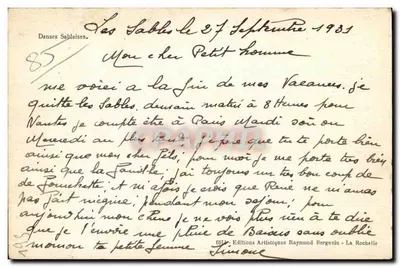 Danses Sablaises
Les Sables le 27 Septembre 1931
85
Mon cher Petit homme
me voici a la fin de mes Vacances. je
quitte les Sables. demain matin à 8 Heures pour
Nantes je compte être à Paris Mardi soir ou
Mercredi au plus tard. j'espère que tu te porte bien
ainsi que mes cher Petits; pour moi je me porte très bien
ainsi que la famille; j'ai toujours un très bon coup de
de fourchette; et m'a je crois que René ne m'aimes
pas fait maigrire; pendant mon sejour; pour
aujourdhui mon cher je ne vois plus rien à te dire
que je t'envoie une Pluie de Baisers sans oublié
momon ta petite femme Simone
Editions Artistiques Raymond Bergevin - La Rochelle